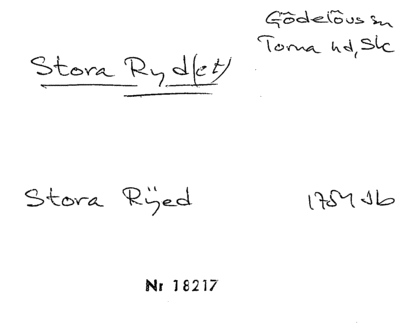 Gödelövs sn
Torna hd, Sk
Stora Ryd(et)
Stora Rÿed 1754 Jb
Nr 18217